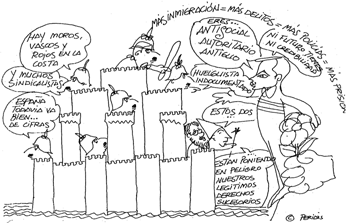 MÁS INMIGRACIÓN = MÁS DELITOS = MÁS POLICÍAS = MÁS PRISIÓN
HAY MOROS,
VASCOS Y
ROJOS EN LA
COSTA
Y MUCHOS
SINDICALISTAS
ESPAÑA
TODAVIA VA
BIEN...
DE CIFRAS
ERES...
ANTISOCIAL
O
AUTORITARIO
ANTIELLO
NI FUTURO TIENES
NI CREDIBILIDAD
HUELGUISTA
INDOCUMENTADO
ESTOS DOS...
ESTAN PONIENDO
EN PELIGRO
NUESTROS
LEGITIMOS
DERECHOS
SUCESORIOS
©